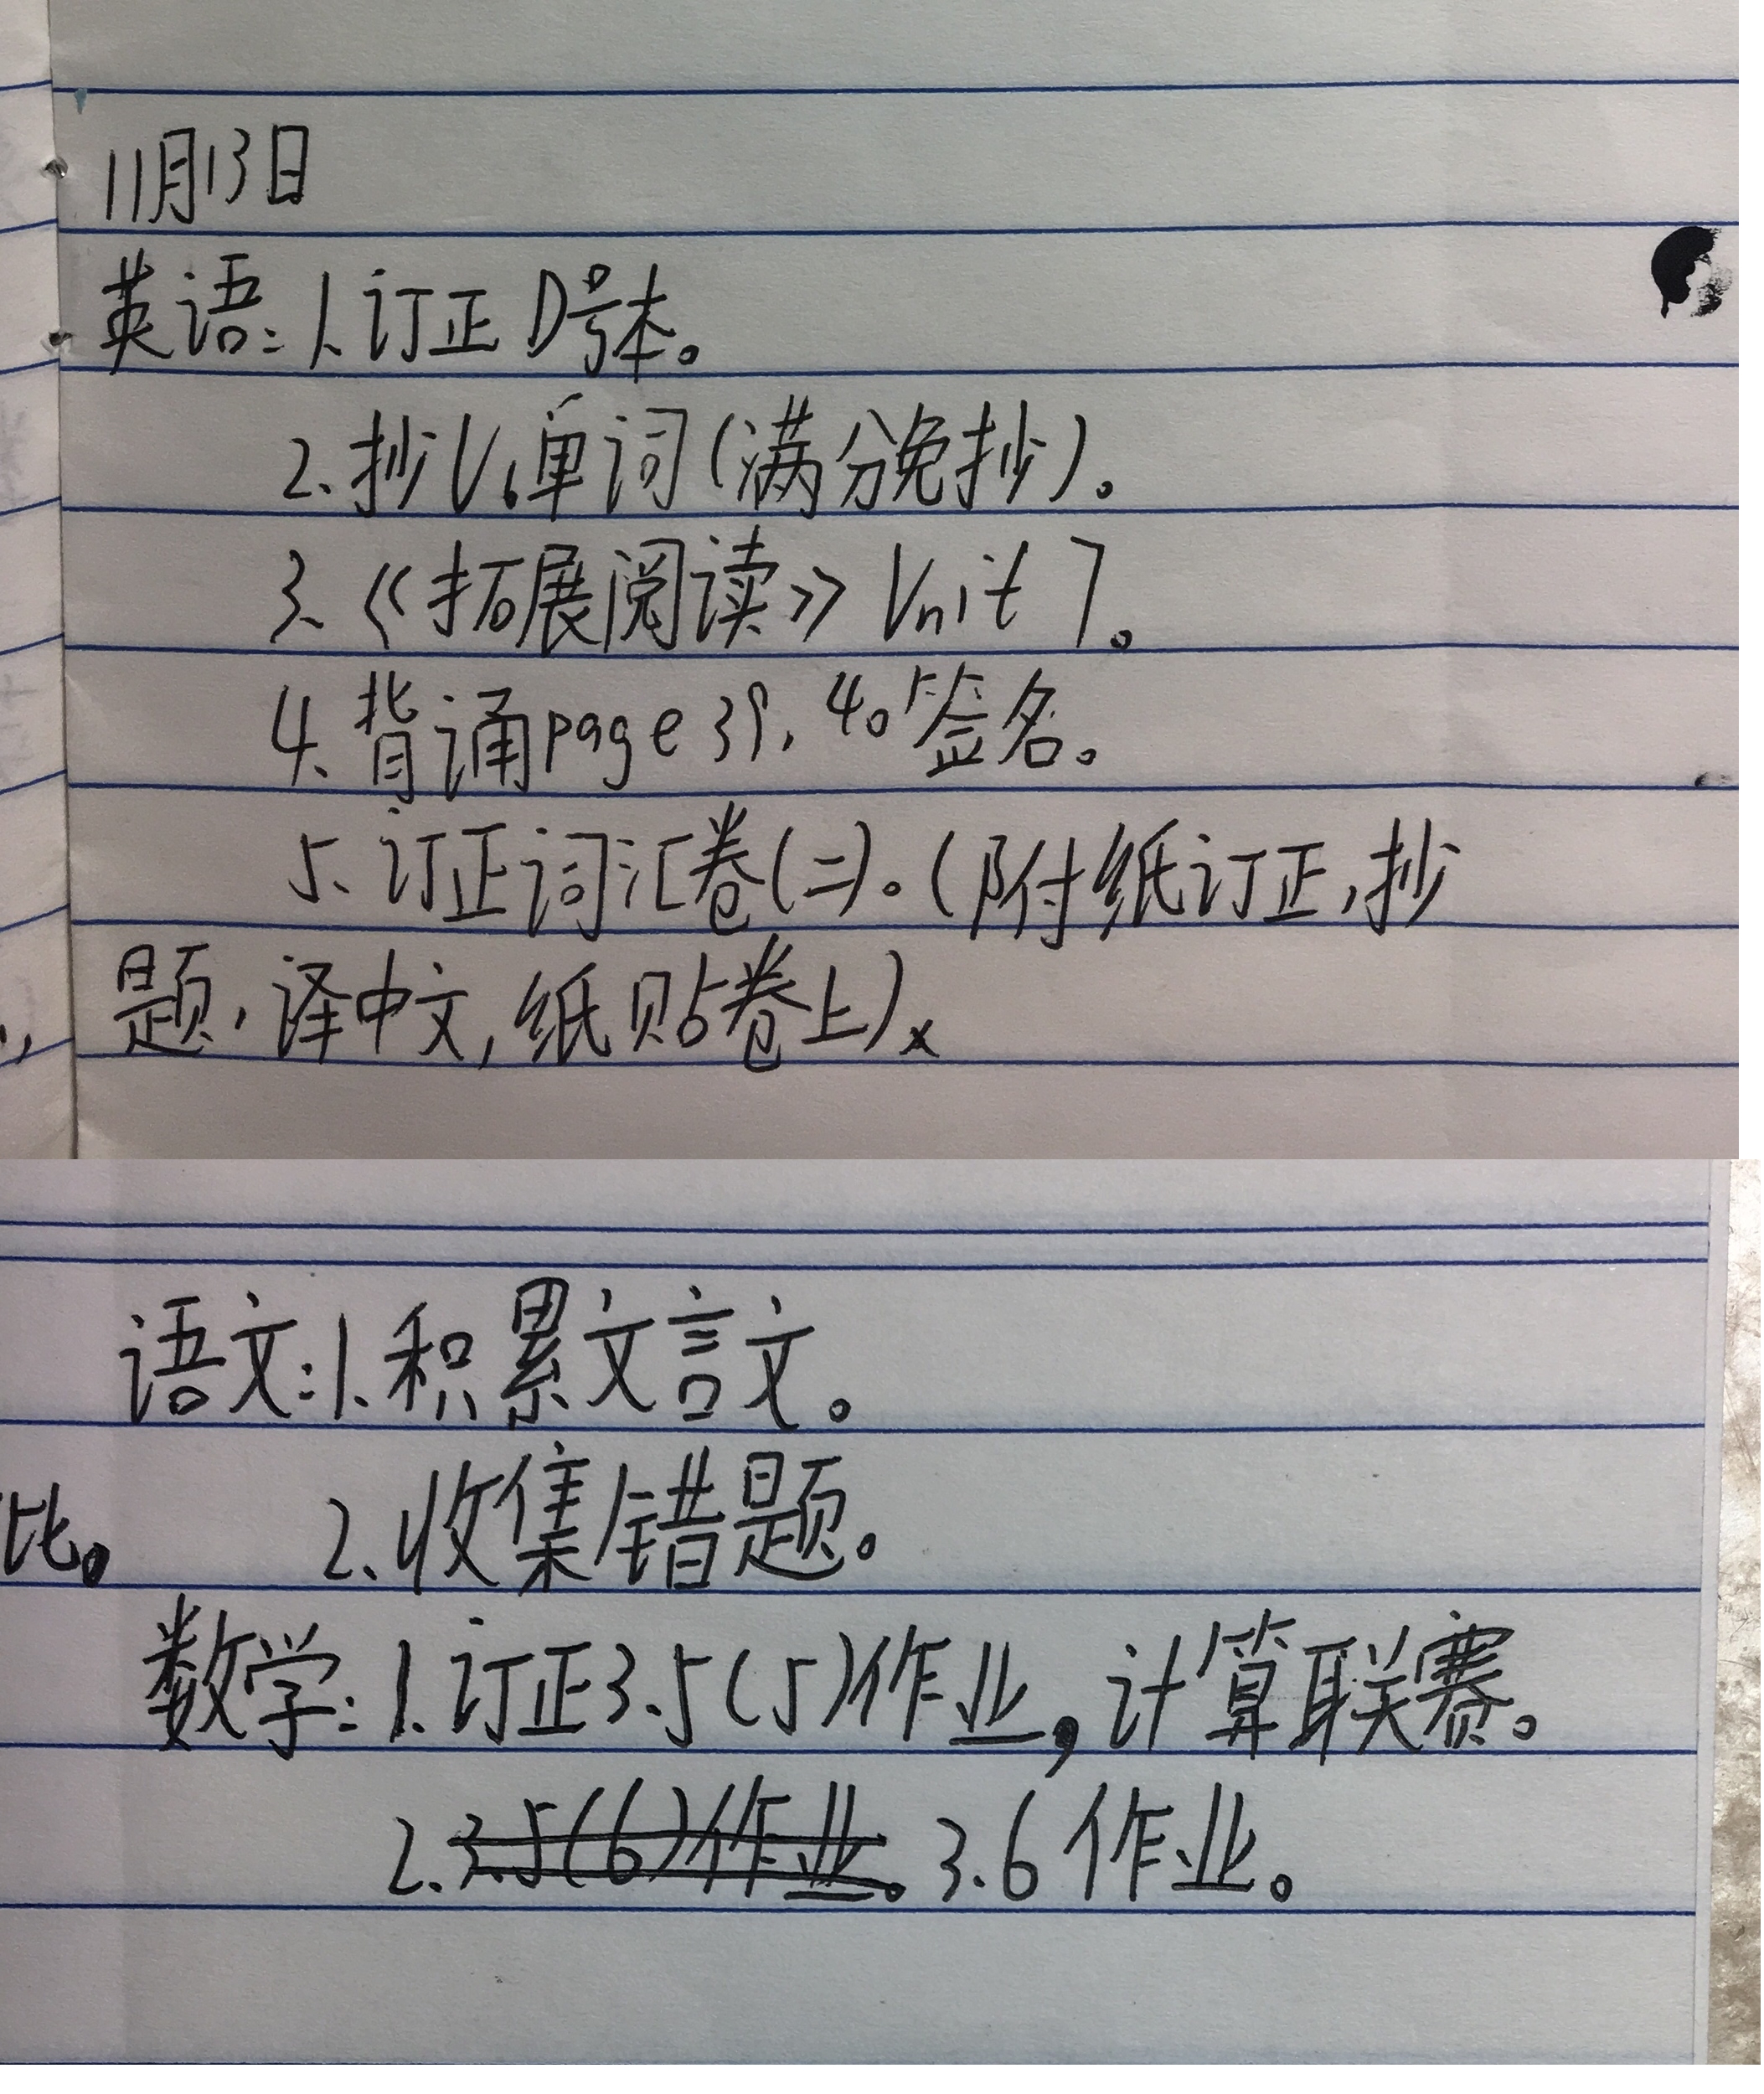 11月13日
英语:1.订正D号本。
2.抄U6单词(满分免抄)。
3.《拓展阅读》Unit 7。
4.背诵page39,40签名。
5.订正词汇卷(二)。(附纸订正,抄
题,译中文,纸贴卷上)
语文:1.积累文言文。
2.收集错题。
数学:1.订正3.5(5)作业,计算联赛。
2.3.5(6)作业。3.6作业。